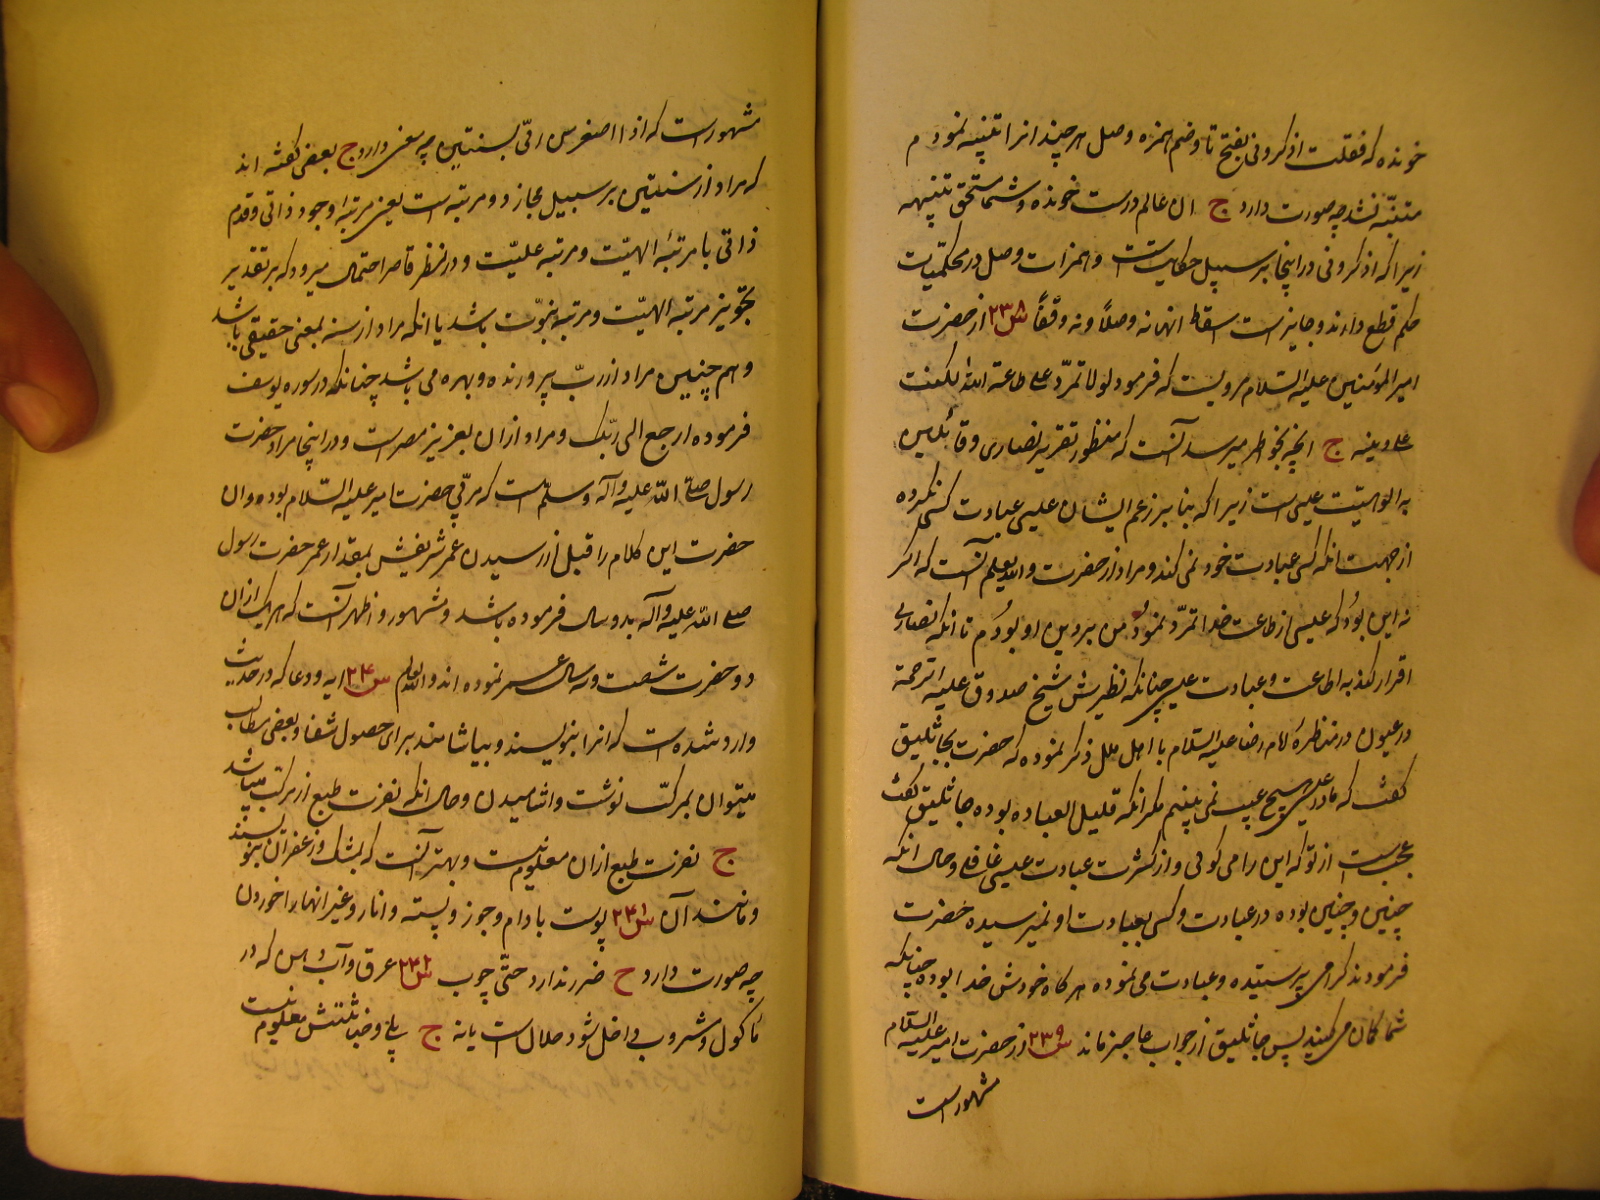 خونده که فقلت اذکرونی بفتح تا و ضم همزه وصل هر چند انرا تنبیه نمودم
متنبّه نشد چه صورت دارد ج ان عالم درست خونده و شما مستحق تنبیهه
زیرا که اذکرونی در اینجا بر سبیل حکایت است و همزات وصل در محکمیات
حکم قطع دارند و جایز است سقاط انها نه وصلاً و نه وقفاً س۲۳۸ از حضرت
امیر المؤمنین علیه السّلام مرویست که فرمود لولا تمرّد علی طاعة الله لکنت
علی دینه ج انچه بخواطر میرسد آنست که منظور تقریر نصاری و قائلین
به الوهیّت عیسی است زیرا که بنا بر زعم ایشان عیسی عبادت کسی نکرده
از جهت انکه کسی عبادت خود نمی کند و مراد از حضرت والله یعلم آنست که اگر
نه این بود که عیسی از طاعت خدا تمرّد نمود من بر دین او بودم تا انکه نصاری
اقرار کنند به اطاعت و عبادت عیسی چنانکه نظیرش شیخ صدوق علیه الرحمة
در عیون در مناظره امام رضا علیه السّلام با اهل ملل ذکر نموده که حضرت بجاثلیق
گفت که ما در عیسی مسیح عیب نمی بینم مگر انکه قلیل العباده بوده جاثلیق گفت
عجب است از تو که این را می گوئی و از کثرت عبادت عیسی غافلی و حال انکه
چنین و چنین بوده در عبادت و کسی بعبادت او نمیرسیده حضرت
فرمودند کرا می پرستیده و عبادت می نموده هر گاه خودش خدا بوده چنانکه
شما گمان می کنید پس جاثلیق از جواب عاجز ماند س۲۳۹ از حضرت امیر علیه السّلام
مشهور است
مشهور است که انا اصغر من ربّی بسنتین چه معنی دارد ج بعضی گفته اند
که مراد از سنتین بر سبیل مجاز دو مرتبه است یعنی مرتبهٔ وجود ذاتی و قدم
ذاتی با مرتبهٔ الهیّت و مرتبه علیّت و در نظر قاصر احتمال میرود که بر تقدیر
تجویز مرتبه الهیّت و مرتبه نبوّت باشد یا انکه مراد از سنه بمعنی حقیقی باشد
و هم چنین مراد از ربّ پرورنده و بهره می باشد چنانکه در سوره یوسف
فرموده ارجع الی ربّک و مراد ازان بعزیز مصر است و در اینجا مراد حضرت
رسول صلّی الله علیه و آله و سلّم است که مربّی حضرت امیر علیه السّلام بوده و ان
حضرت این کلام را قبل از رسیدن عمر شریفش بمقدار عمر حضرت رسول
صلی الله علیه و آله بدو سال فرموده باشد و مشهور و اظهر آنست که هر یک ازان
دو حضرت شصت و سه سال عمر نموده اند والله یعلم س۲۴۰ ایه و دعا که در حدیث
وارد شده است که انرا بنویسند و بیاشامند برای حصول شفا و بعضی مطالب
میتوان بمرکّب نوشت و اشامیدن و حال انکه نفرت طبع از مرکب میباشد
ج نفرت طبع ازان معلوم نیست و بهتر آنست که بمشک و زعفران بنویسند
و مانند آن س۲۴۱ پوست بادام و جوز و پسته و انار و غیر انها را خوردن
چه صورت دارد ج ضرر ندارد حتّی چوب س۲۴۲ عرق و آب دهن که در
ماکول و مشروب داخل شود حلال است یا نه ج بلی و خباثتش معلوم نیست